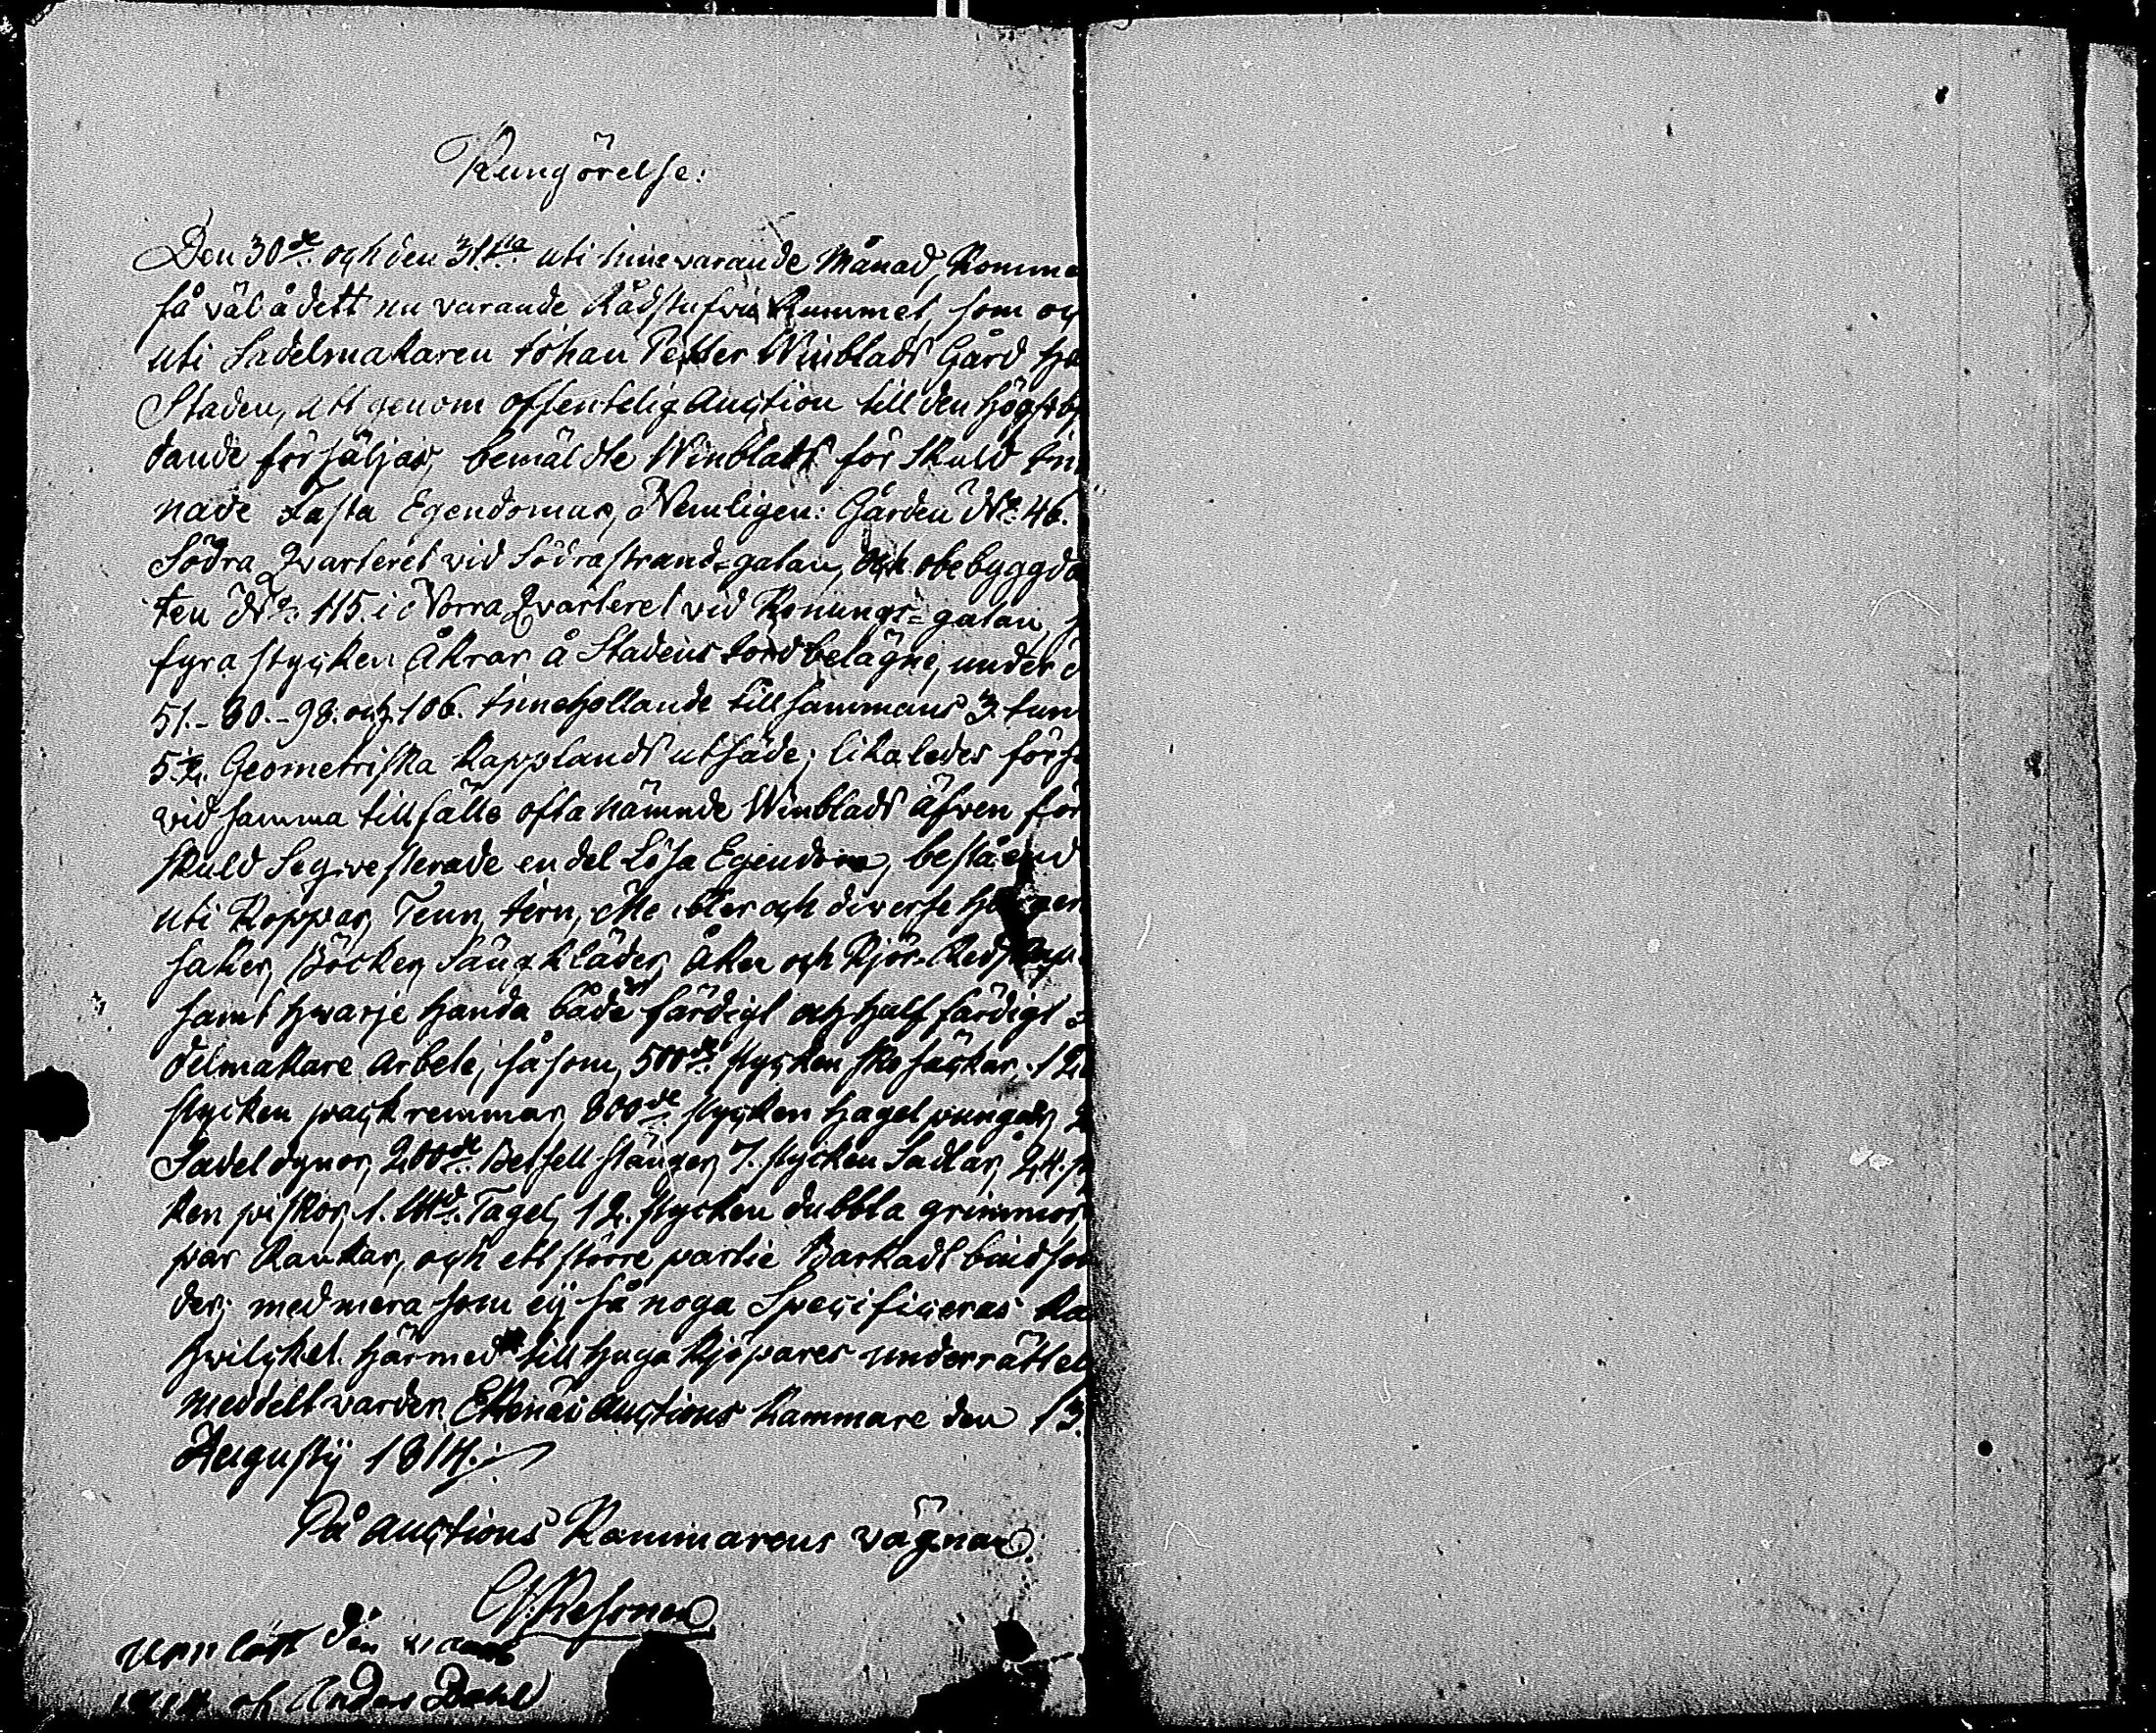 Kungörelse:
Den 30de och den 31sta uti innevarande Månad, Komme
så väl å dett nu varande Rådstufvu Rummet, som oc
uti Sadelmakaren Johan Petter Winblads Gård hä
Staden, att genom offentelig Auction till den högstbj
dande försäljas, bemäldte Winblads för skuld in
nade Fasta Egendomar, Nemligen: Gården No 46.
Södra Qvarteret vid Södrastrand-gatan, och obebyggda
ten No 115. i Norra Qvarteret vid Konungs-gatan,
fyra stycken Åkrar å Stadens Jord belägne, under
51.- 80.- 98. och 106. innehollande tillsammans 3. tun
5½. Geometriska Kapplands utsäde; likaledes förs
vid samma tillfälle oftanämnde Winblads äfven för
skuld Seqvesterade en del Lösa Egendom, beståend
uti Koppar, Tenn, Jern, Meubler och diverse
saker, Böcker, Sängkläder, Åker och Kjör-Redskap
samt hvarje handa både färdigt och half färdigt
delmakare Arbete, såsom, 500de stycken
stycken packremmar, 800de stycken hagel pungar, 2
Sadel dynor, 200de stänger, 7. stycken Sadlar, 24. st
ken piskor, 1. Tagel, 12. stycken dubbla grimmor,
par Rankar, och ett större partie Barkadt
der; med mera som ej så noga Specificeras Ka
hvilcket härmed till hugade Kjöpares underrättel
meddelt varder. Ekenäs Auctions Kammare den 13.
Augustij 1814.
På Auctions Kammarens vägnar:
Upp läst den
af Anders Dahl